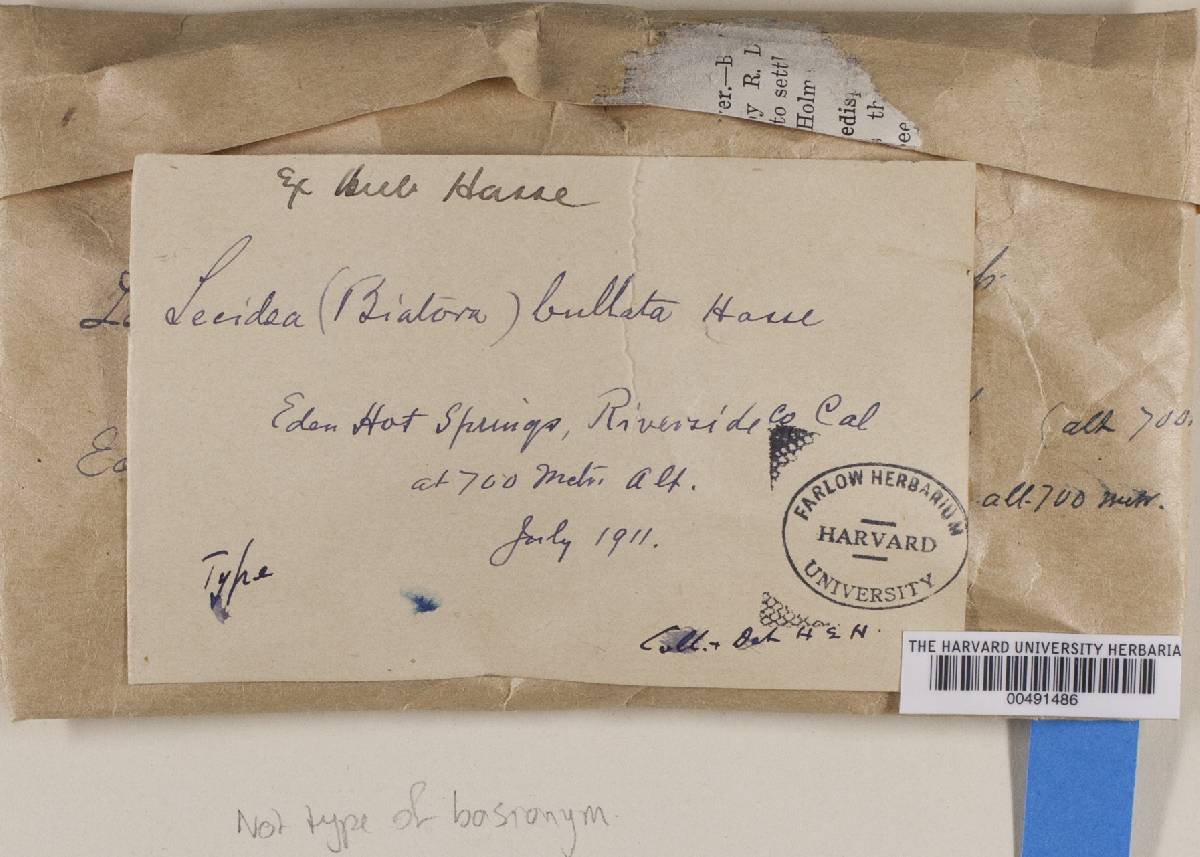 er.—b
y R. L
to settl
Holm
edis
th
ee
Ex Herb Hasse
Lecidea (Biatora) bullata Hasse
Eden Hot Springs, Riverside Co Cal
at 700 Metr. Alt.
July 1911.
Type
Coll. + Det H E H.
(alt 700.
alt. 700 metr.
FARLOW HERBARIUM
HARVARD
UNIVERSITY
THE HARVARD UNIVERSITY HERBARIA
00491486
Not type of basionym.